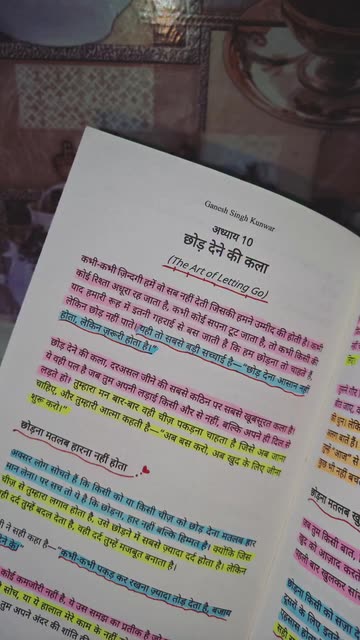 Ganesh Singh Kunwar
अध्याय 10
छोड़ देने की कला
(The Art of Letting Go)
कभी-कभी ज़िन्दगी हमें वो सब नहीं देती जिसकी हमने उम्मीद की होती है। कभी
कोई रिश्ता अधूरा रह जाता है, कभी कोई सपना टूट जाता है, तो कभी किसी की
याद हमारी रूह में इतनी गहराई से बस जाती है कि हम छोड़ना तो चाहते हैं,
लेकिन छोड़ नहीं पाते। यही तो सबसे बड़ी सच्चाई है— "छोड़ देना आसान नहीं
होता, लेकिन ज़रूरी होता है।"
छोड़ देने की कला, दरअसल जीने की सबसे कठिन पर सबसे खूबसूरत कला है।
ये वही पल है जब तुम अपनी लड़ाई किसी और से नहीं, बल्कि अपने ही दिल से
लड़ते हो। तुम्हारा मन बार-बार वही चीज़ पकड़ना चाहता है जिसे अब जाना
चाहिए, और तुम्हारी आत्मा कहती है—"अब बस करो, अब खुद के लिए जीना
शुरू करो।"
छोड़ना मतलब हारना नहीं होता
अक्सर लोग सोचते हैं कि किसी को या किसी चीज़ को छोड़ देना मतलब हार
मान लेना। पर सच तो ये है कि छोड़ना, हार नहीं बल्कि हिम्मत है। क्योंकि जिस
चीज़ से तुम्हारा लगाव होता है, उसे छोड़ने में सबसे ज़्यादा दर्द होता है। लेकिन
वही दर्द तुम्हें बदल देता है, वही दर्द तुम्हें मजबूत बनाता है।
ने सही कहा है— "कभी-कभी पकड़ कर रखना ज़्यादा तोड़ देता है, बजाय
कोई कमजोरी नहीं है, ये उस समझ का प्रतीक है जो
सोच, या ये हालात मेरे काम के नहीं
तुम अपने अंदर की शांति की
छोड़ना मतलब नहीं
जब तुम किसी बात, किसी
खुद को आज़ाद करते
पहली बार खुलकर सांस
छोड़ना किसी को सज़ा